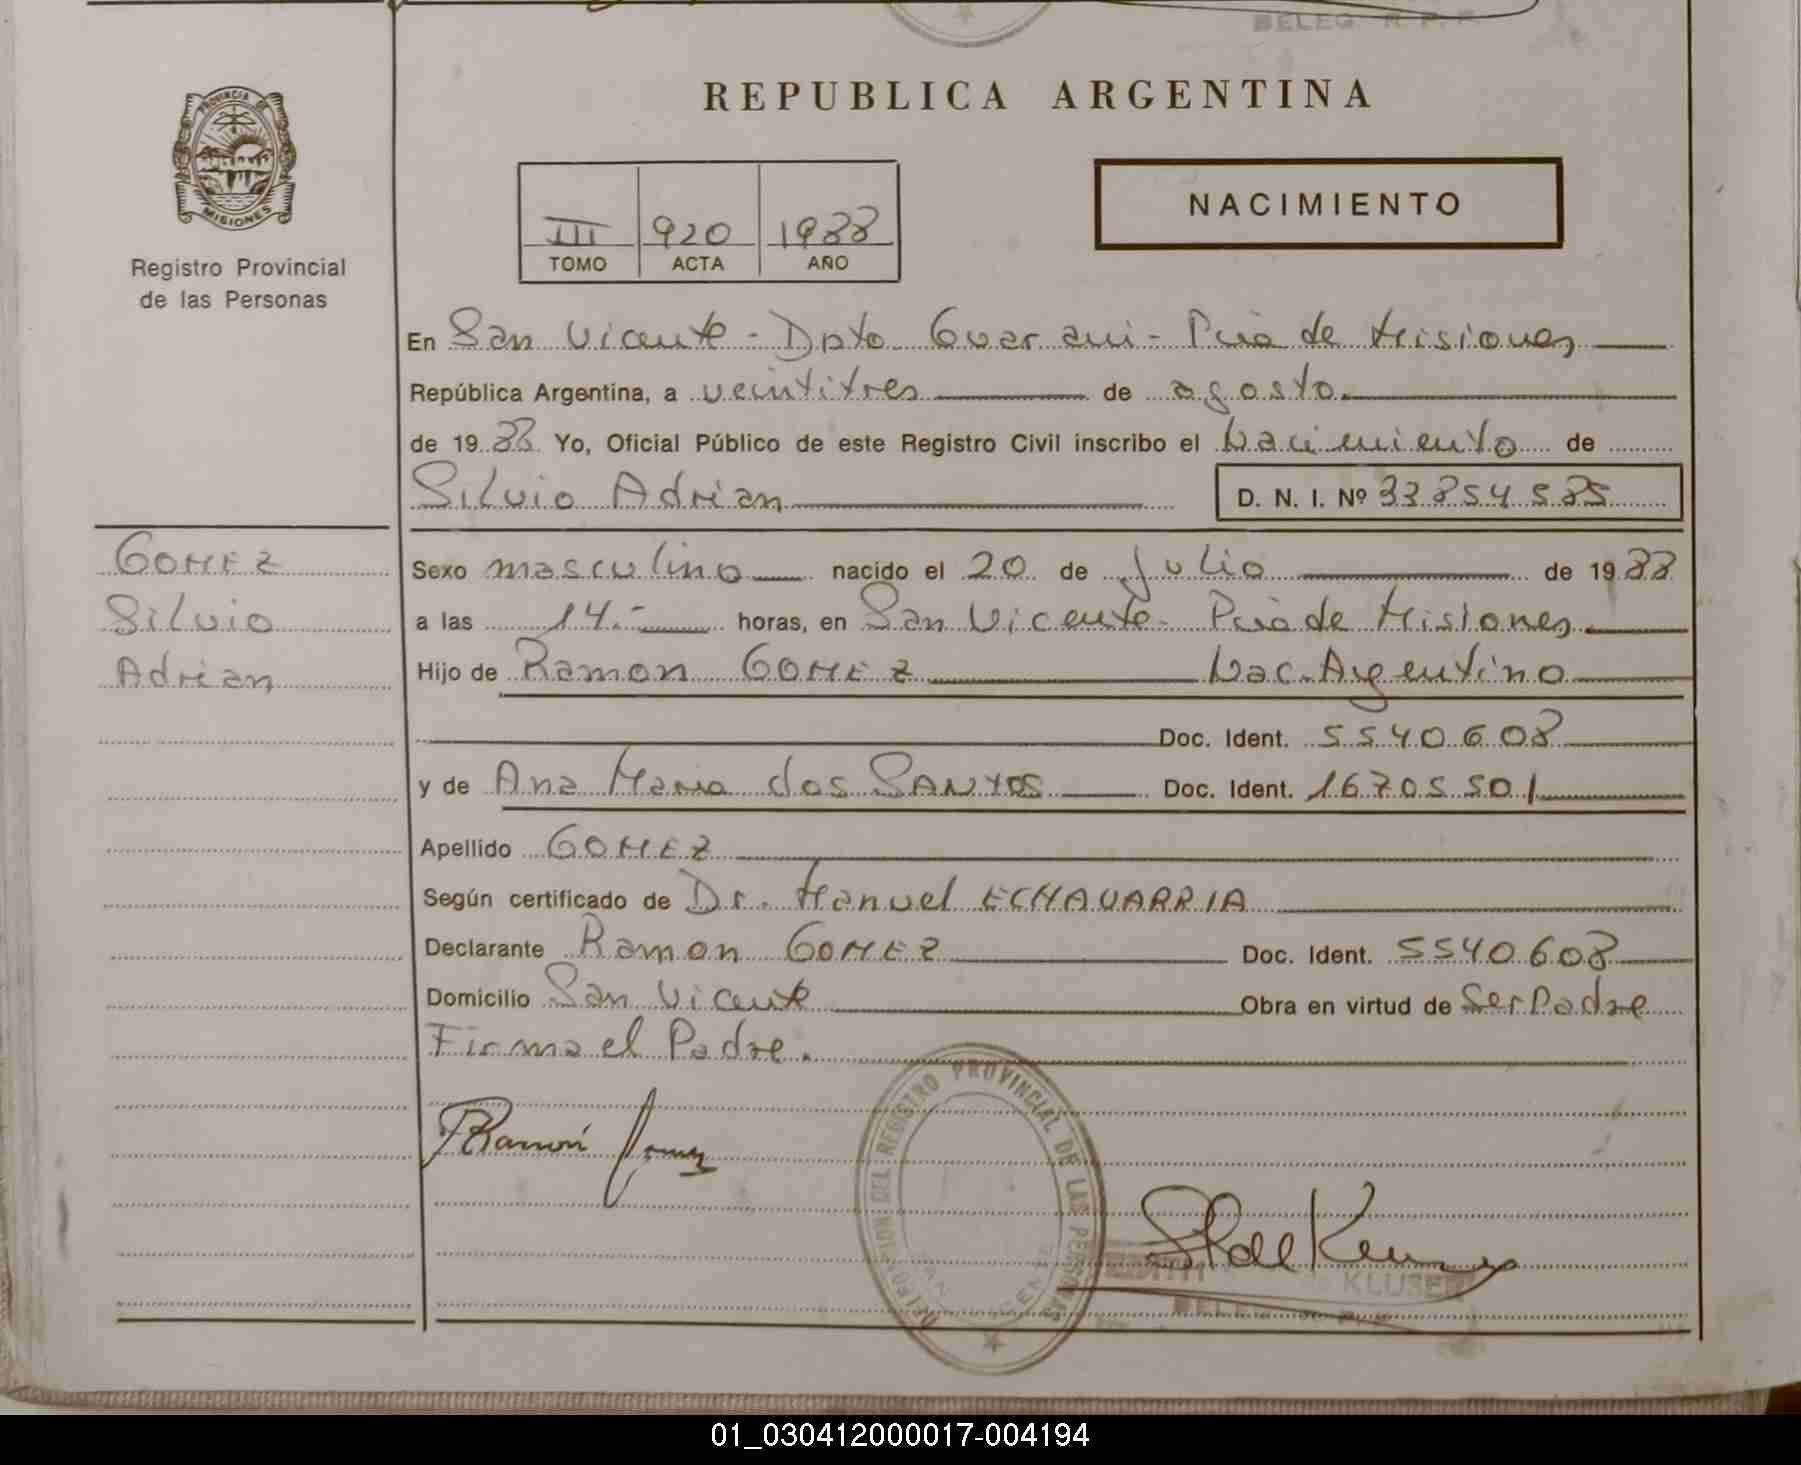 BELEG. R. P. P.
REPUBLICA ARGENTINA
PROVINCIA DE
MISIONES
Registro Provincial
de las Personas
NACIMIENTO
III 920 1988
TOMO ACTA AÑO
En San Vicente - Dpto Guarani - Pcia de Misiones
República Argentina, a veintitres de agosto
de 1988 Yo, Oficial Público de este Registro Civil inscribo el Nacimiento de
Silvio Adrian D. N. I. Nº 33854585
GOMEZ
Silvio
Adrian
Sexo masculino nacido el 20 de Julio de 1988
a las 14.- horas, en San Vicente - Pcia de Misiones
Hijo de Ramon GOMEZ Nac. Argentino
Doc. Ident. 5540608
y de Ana Maria dos SANTOS Doc. Ident. 16705501
Apellido GOMEZ
Según certificado de Dr. Manuel ECHAVARRIA
Declarante Ramon GOMEZ Doc. Ident. 5540608
Domicilio San Vicente Obra en virtud de Ser Padre
Firma el Padre.
Ramón Gomez
DEL REGISTRO PROVINCIAL DE LAS PERSONAS
SAN VICENTE
de KLUSER
BELEG. R. P. P.
01_030412000017-004194